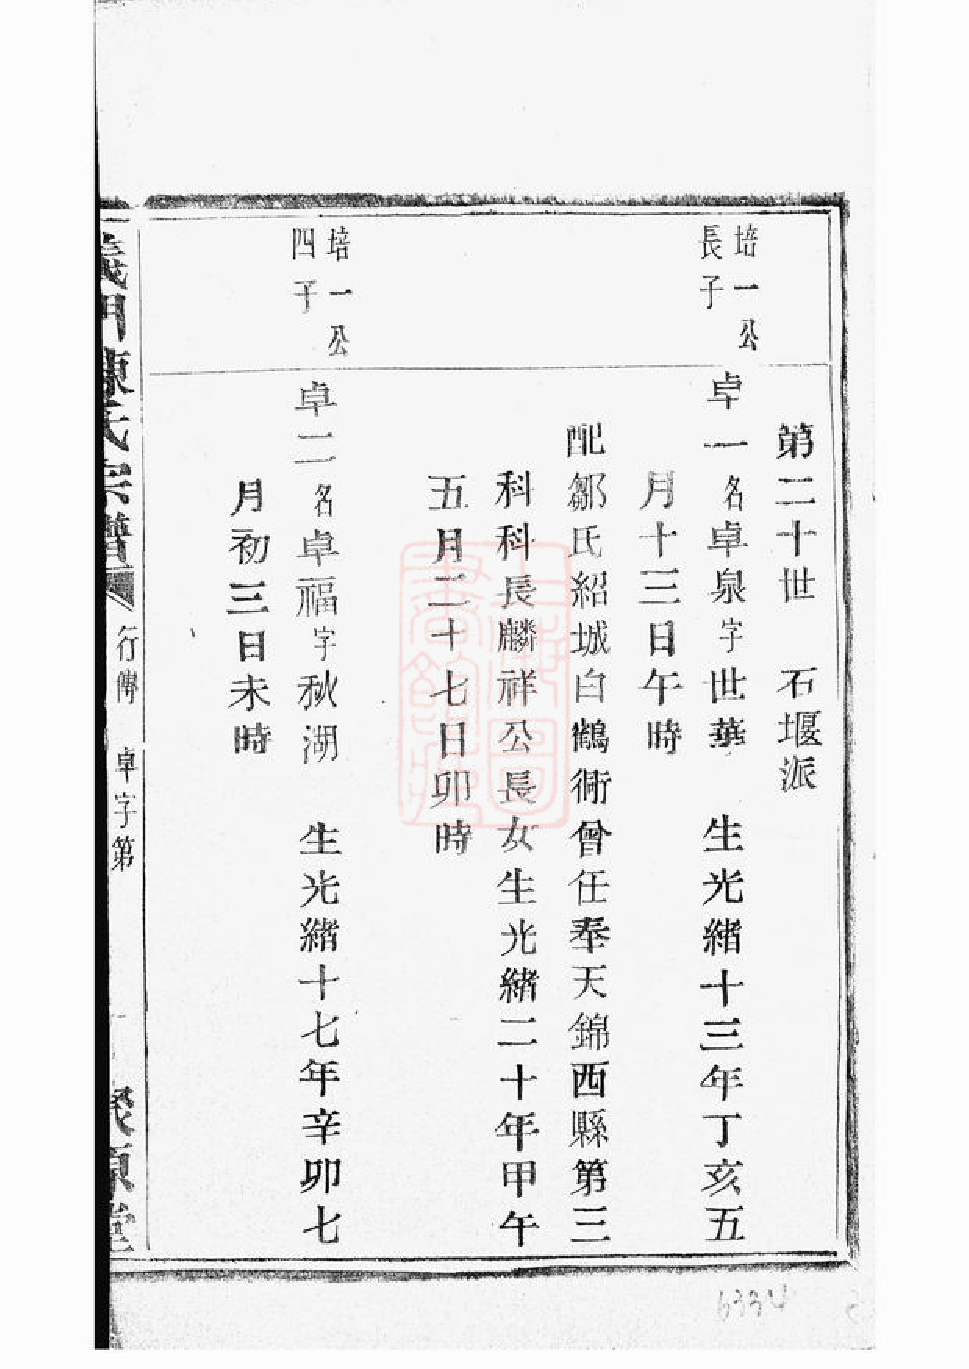 第二十世 石堰派
培一公
長子
卓一名卓泉字世華 生光緒十三年丁亥五
月十三日午時
配鄒氏紹城白鶴衕曾任奉天錦西縣第三
科科長麟祥公長女生光緒二十年甲午
五月二十七日卯時
培一公
四子
卓二名卓福字秋湖 生光緒十七年辛卯七
月初三日未時
義門陳氏宗譜 行傳 卓字第
6334